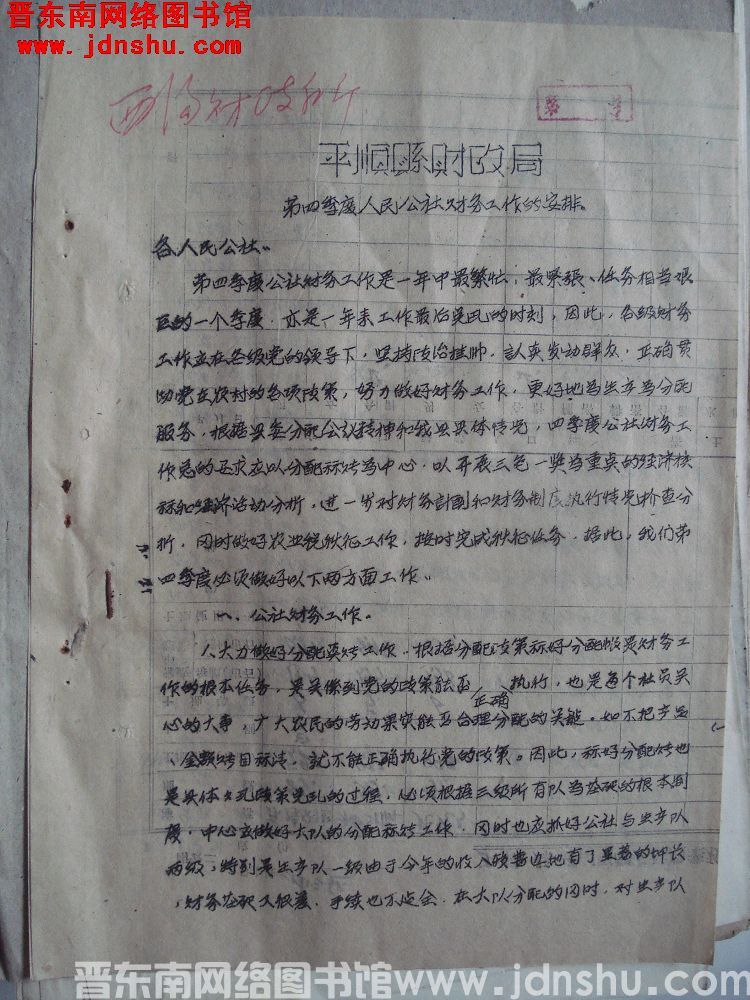 晋东南网络图书馆
www.jdnshu.com
平順縣財政局
第四季度人民公社财务工作的安排。
各人民公社。
第四季度公社财务工作是一年中最繁忙,最緊張、任务相当艰
巨的一个季度.亦是一年来工作最后的时刻,因此,各级财务
工作应在各级党的领导下,坚持政治挂帅.認真发动群众.正确贯
党在农村的各项政策,努力做好财务工作,更好地为生产为分配
服务,根据县委分配会议精神和我县具体情况,四季度公社财务工
作总的要求应以分配标为中心.以开展三包一奖为重点的经济核
和经济活动分析,进一步对财务計划和财务制度执行情况检查分
析.同时做好农业税秋征工作,按时完成秋征任务.据此,我们第
四季度必须做好以下两方面工作。
一、公社财务工作。
1.大力做好分配工作.根据分配政策好分配是财务工
作的根本任务,是关係到党的政策能否正确执行,也是每个社员关
心的大事,广大农民的劳动果实能否合理分配的关键.如不把产品
、金额目清,就不能正确执行党的政策。因此,好分配也
是具体政策的过程,必须根据三级所有队为基础的根本制
度,中心应做好大队的分配工作.同时也应抓好公社与生产队
两级,特别是生产队一级由于今年的收入地有了显著的增长
,财务基础又很差.手续也不健全.在大队分配的同时.对生产队
晋东南网络图书馆www.jdnshu.com